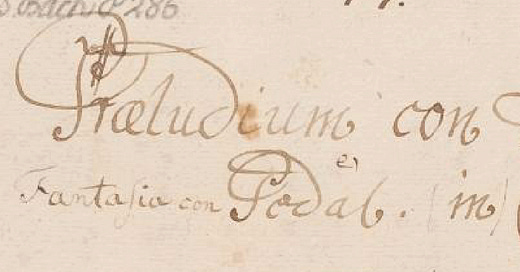 Bach P 286
Præludium con
e
Fantasia con Pedal. in